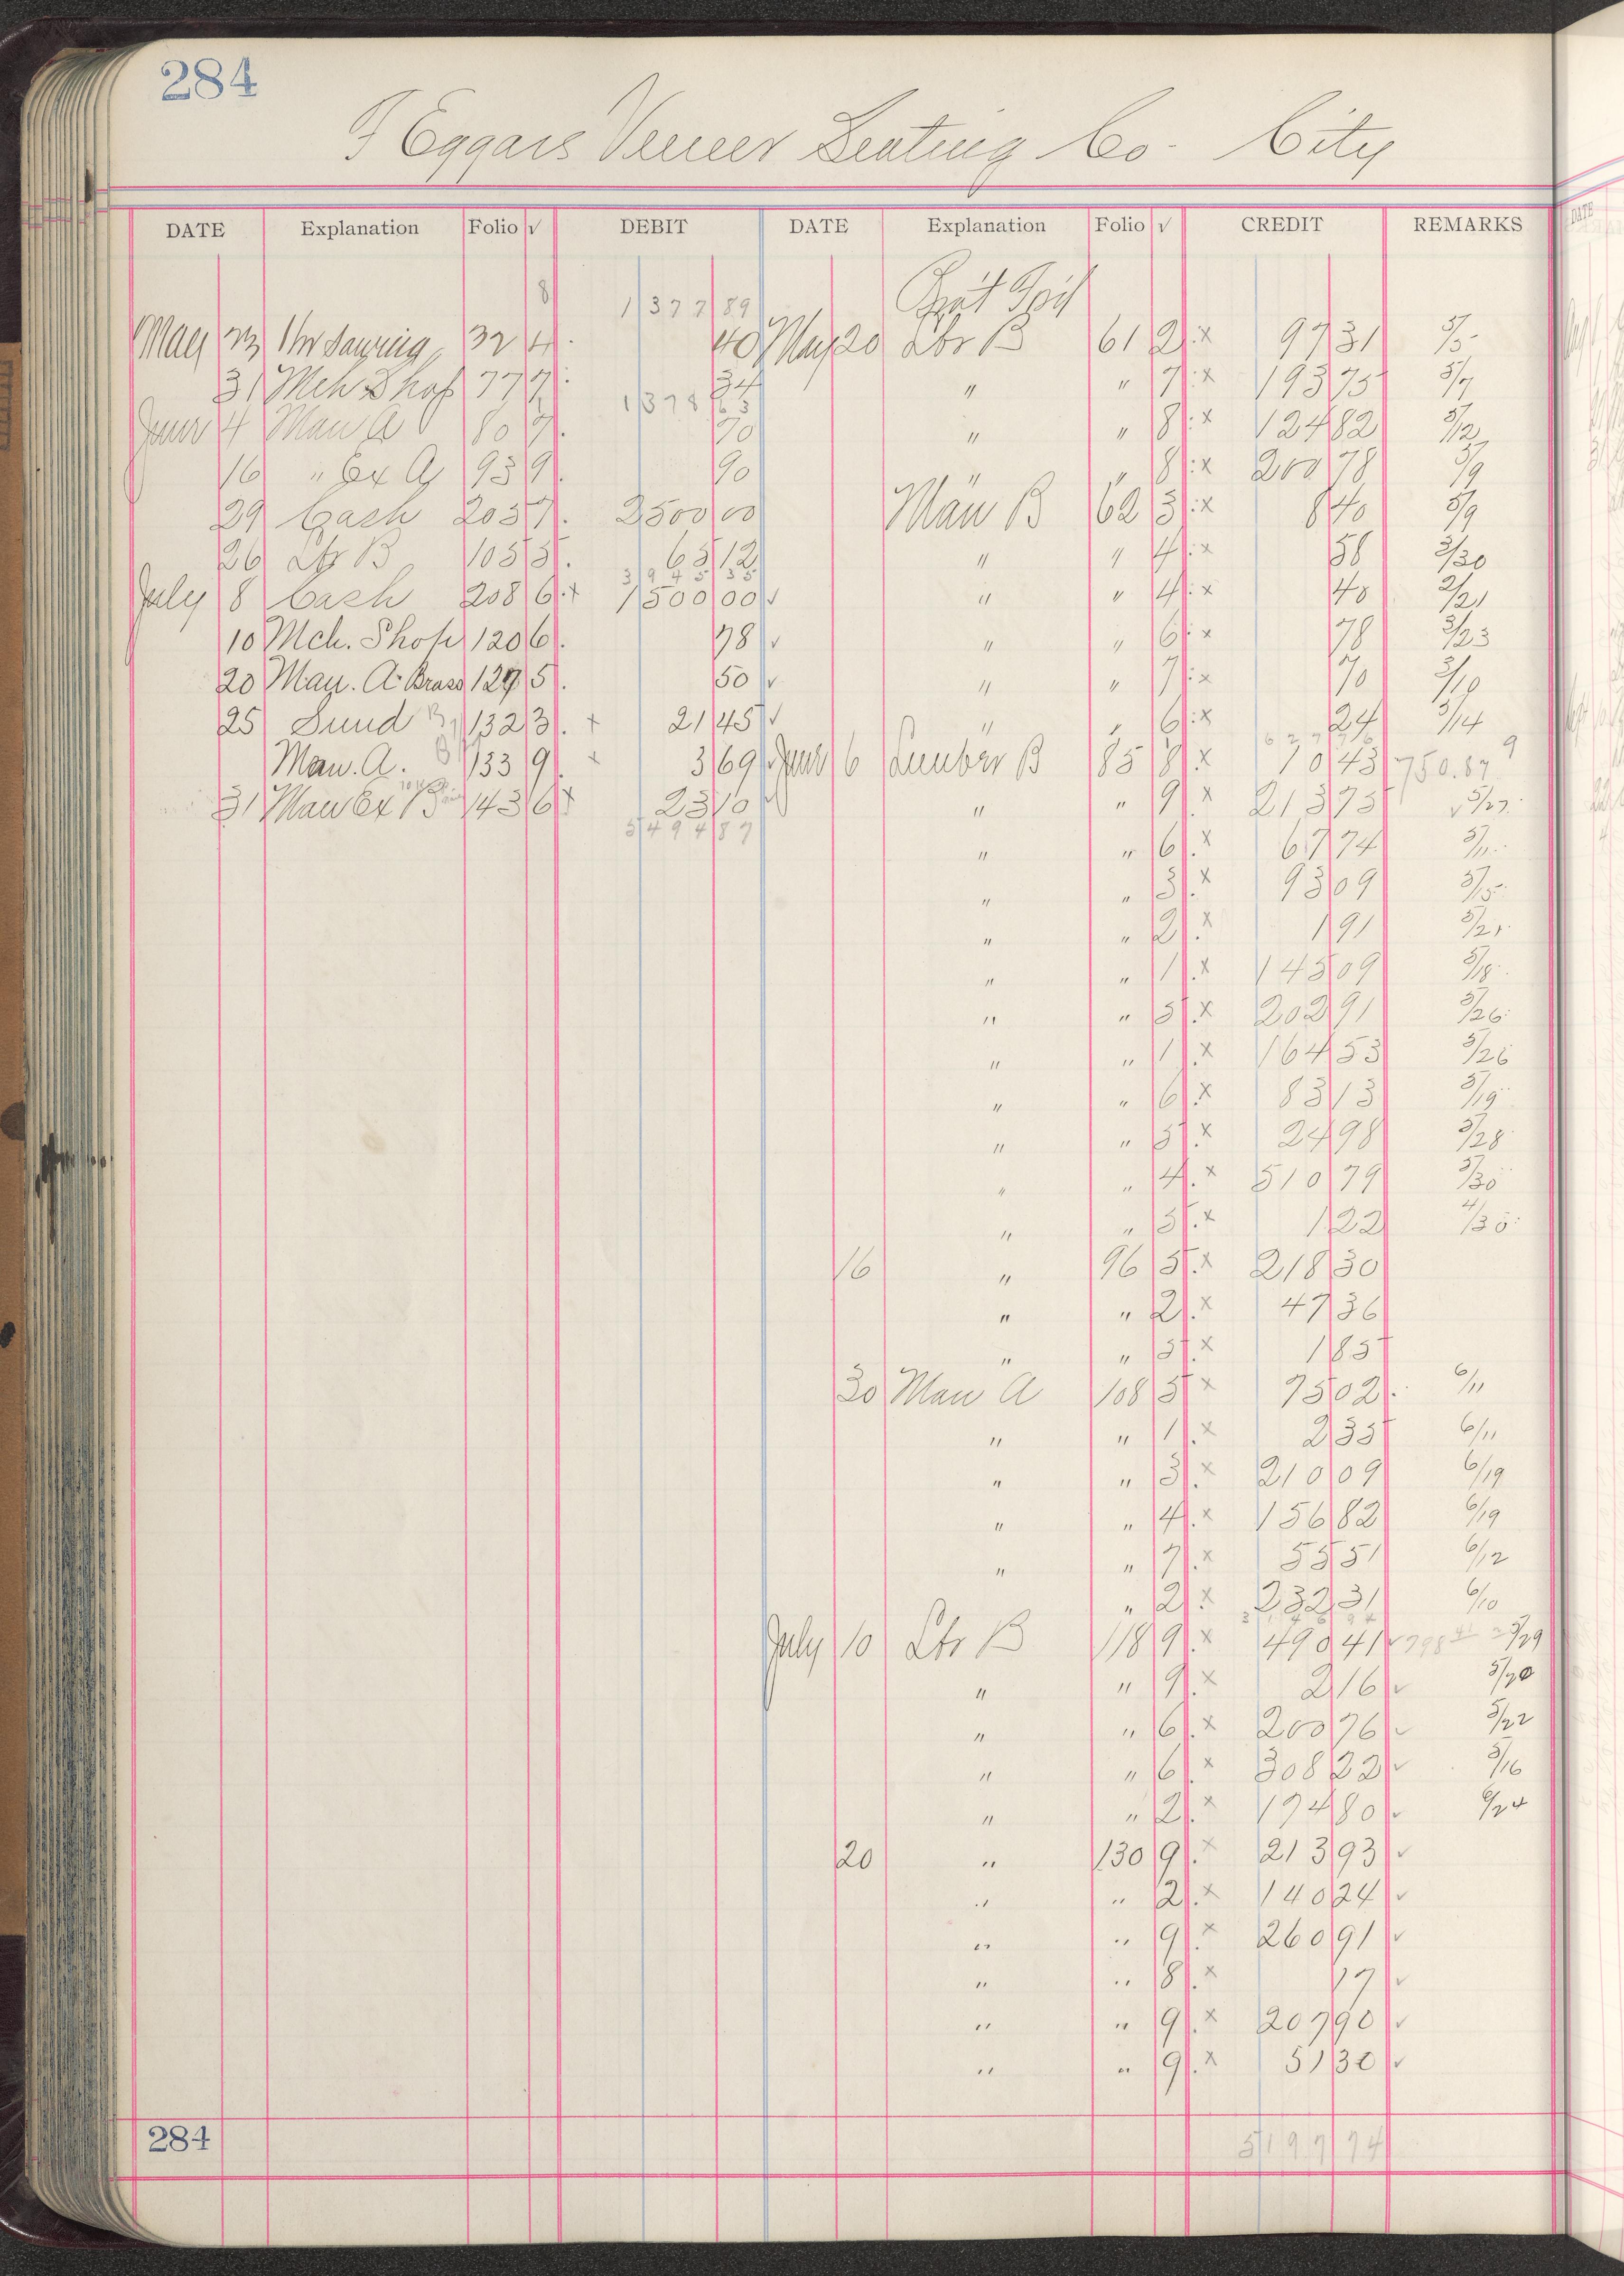 284
F Eggars Veneer Seating Co - City
DATE Explanation Folio √ DEBIT DATE Explanation Folio √ CREDIT REMARKS
8 1 377 89
May 23 32 4 40 May 20 Lbr B 61 2 x 97 31 5/5
31 Mch Shop 77 7 34 " " 7 x 193 75 5/7
1 378 63
June 4 Man A 80 7 70 " " 8 x 124 82 5/12
16 " Ex A 95 9 90 " " 8 x 200 78 5/9
29 Cash 205 7 2500 00 Man B 62 3 x 8 40 5/9
26 Lbr B 105 5 65 12 " " 4 x 58 5/20
3 945 35
July 8 Cash 208 6 x 1500 00 √ " " 4 x 40 5/21
10 Mch. Shop 120 6 78 √ " " 6 x 78 5/23
20 Man. A. Brass 129 5 50 √ " " 7 x 70 5/10
25 Sund B 132 3 x 21 45 √ " " 6 x 24 5/14
Man. A. 133 9 x 3 69 √ June 6 Lumber B 85 8 x 10 43 750.87
31 Man Ex B 143 6 x 23 10 √ " " 9 x 213 75 √ 5/27
5 494 87
" " 6 x 67 74 5/11
" " 3 x 93 09 5/15
" " 2 x 1 91 5/21
" " 1 x 145 09 5/18
" " 5 x 202 91 5/26
" " 1 x 164 53 5/26
" " 6 x 83 13 5/19
" " 5 x 24 98 5/28
" " 4 x 510 79 5/30
" " 5 x 1 22 4/30
16 " 96 5 x 218 30
" " 2 x 47 36
" " 5 x 1 85
30 Man A 108 5 x 75 02 6/11
" " 1 x 2 35 6/11
" " 3 x 210 09 6/19
" " 4 x 156 82 6/19
" " 7 x 55 51 6/12
" 2 x 232 31 6/10
July 10 Lbr B 118 9 x 490 41 √ 5/29
" " 9 x 2 16 √ 5/20
" " 6 x 200 76 √ 5/22
" " 6 x 308 22 √ 5/16
" " 2 x 174 80 √ 6/24
20 " 130 9 x 213 93 √
" " 2 x 140 24 √
" " 9 x 260 91 √
" " 8 x 17 √
" " 9 x 207 90 √
" " 9 x 51 30 √
284 5 197 74